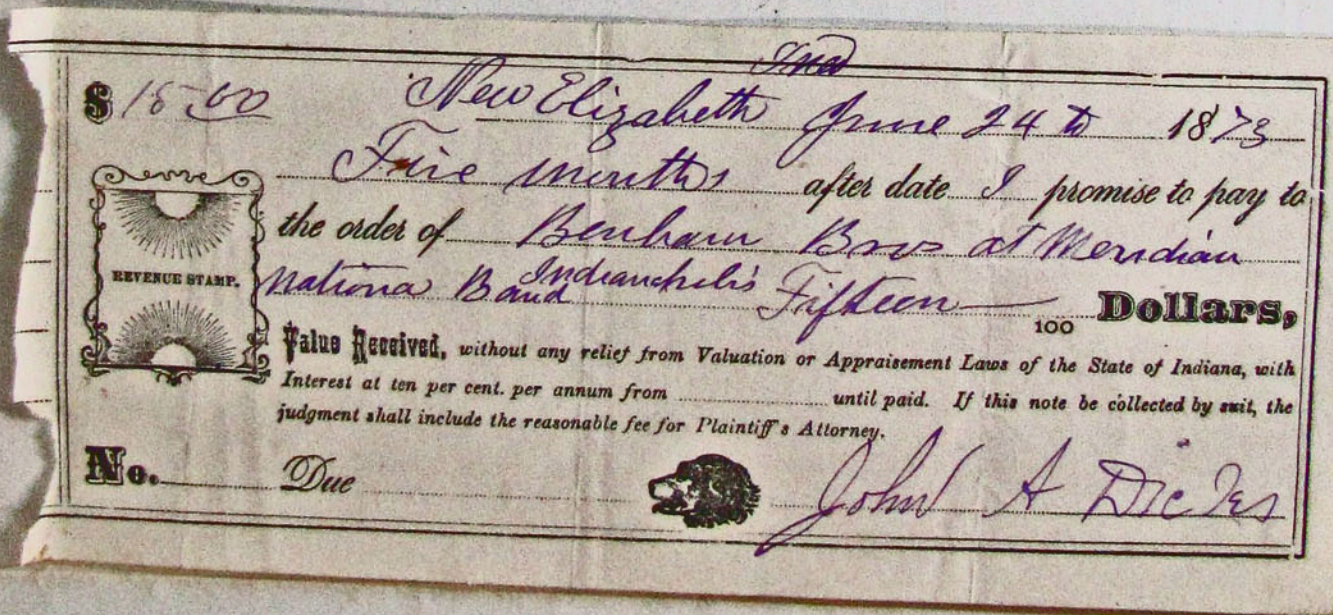 Ind
$ 15.00 New Elizabeth June 24th 1873
Five months after date I promise to pay to
the order of Benham Bros at Meridian
REVENUE STAMP. Nationa Band Indianapolis Fifteen 100 Dollars,
Value Received, without any relief from Valuation or Appraisement Laws of the State of Indiana, with
Interest at ten per cent. per annum from until paid. If this note be collected by suit, the
judgment shall include the reasonable fee for Plaintiff's Attorney.
No. Due John A